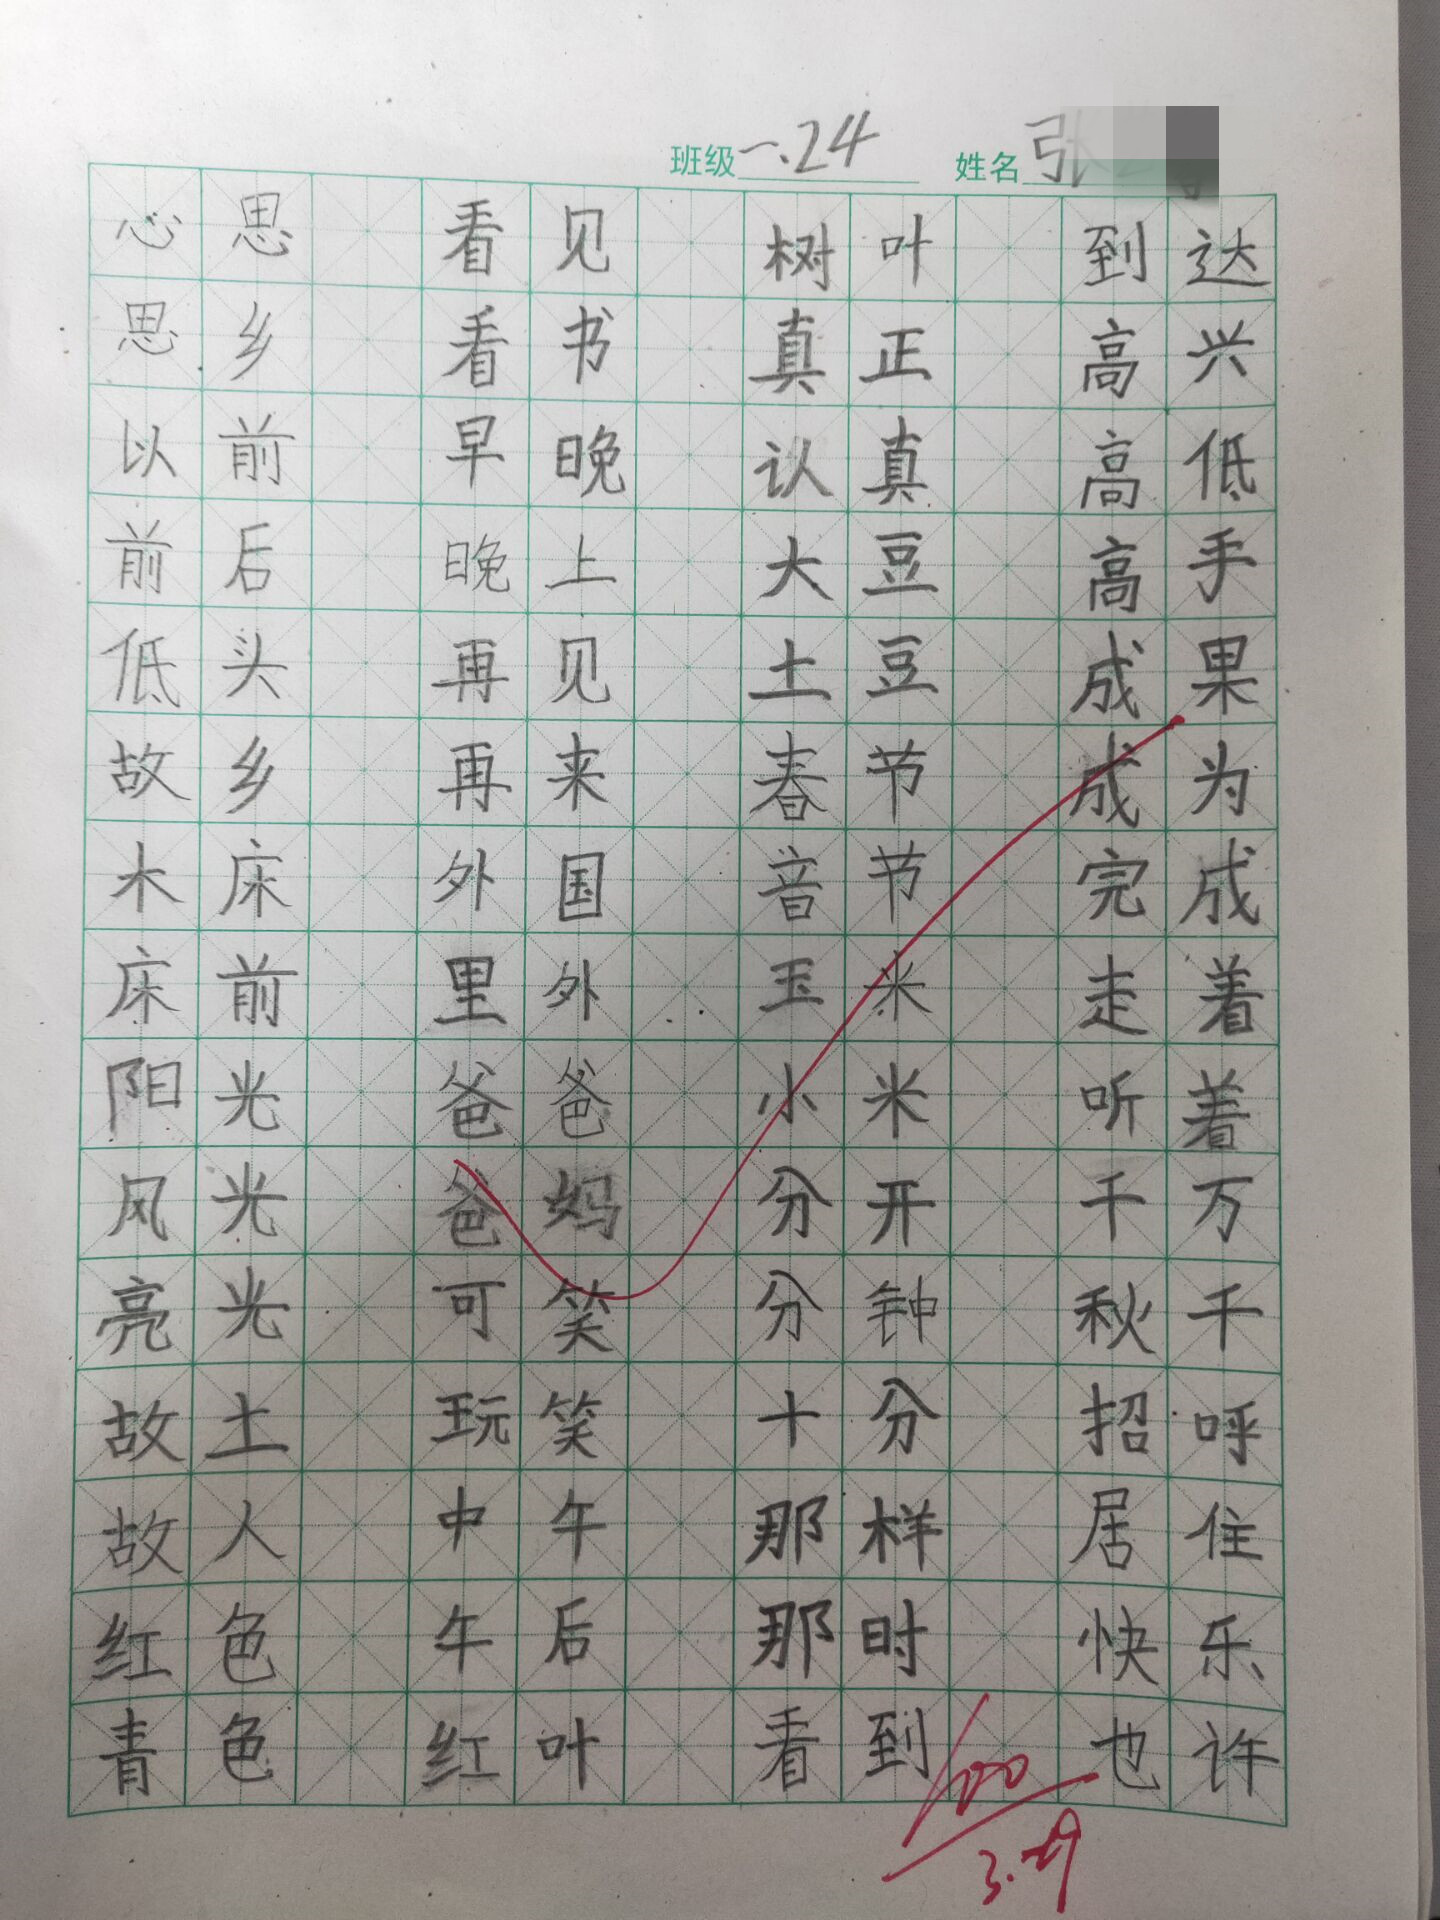 班级 一.24 姓名 张
心思 看见 树叶 到达
思乡 看书 真正 高兴
以前 早晚 认真 高低
前后 晚上 大豆 高手
低头 再见 土豆 成果
故乡 再来 春节 成为
木床 外国 音节 完成
床前 里外 玉米 走着
阳光 爸爸 小米 听着
风光 爸妈 分开 千万
亮光 可笑 分钟 秋千
故土 玩笑 十分 招呼
故人 中午 那样 居住
红色 午后 那时 快乐
青色 红叶 看到 也许
100
3.29